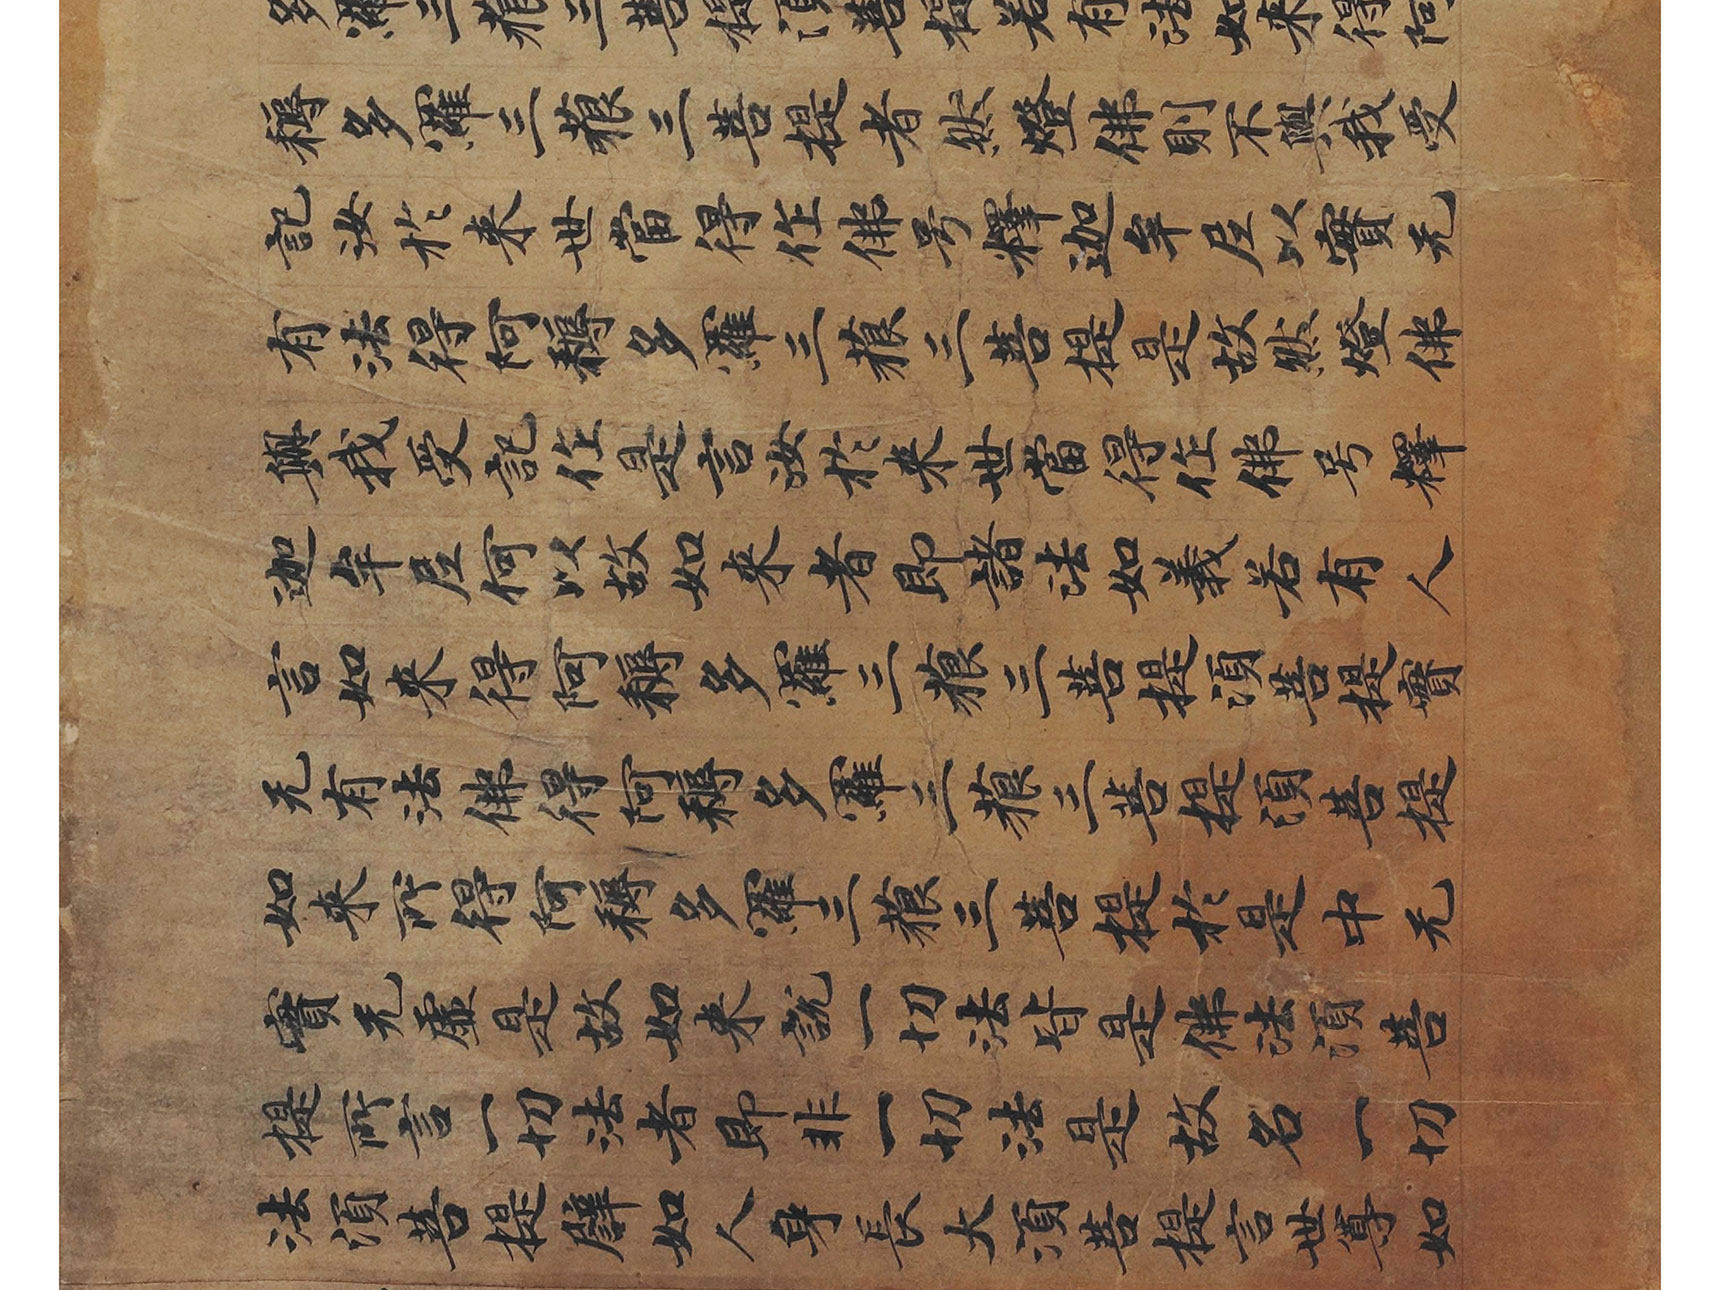 多羅三藐三菩提須菩提若有法如来得阿
耨多羅三藐三菩提者然燈佛則不與我受
記汝於来世當得作佛号釋迦牟尼以實无
有法得阿耨多羅三藐三菩提是故然燈佛
與我受記作是言汝於来世當得作佛号釋
迦牟尼何以故如来者即諸法如義若有人
言如来得阿耨多羅三藐三菩提須菩提實
无有法佛得阿耨多羅三藐三菩提須菩提
如来所得阿耨多羅三藐三菩提於是中无
實无虛是故如来說一切法皆是佛法須菩
提所言一切法者即非一切法是故名一切
法須菩提譬如人身長大須菩提言世尊如